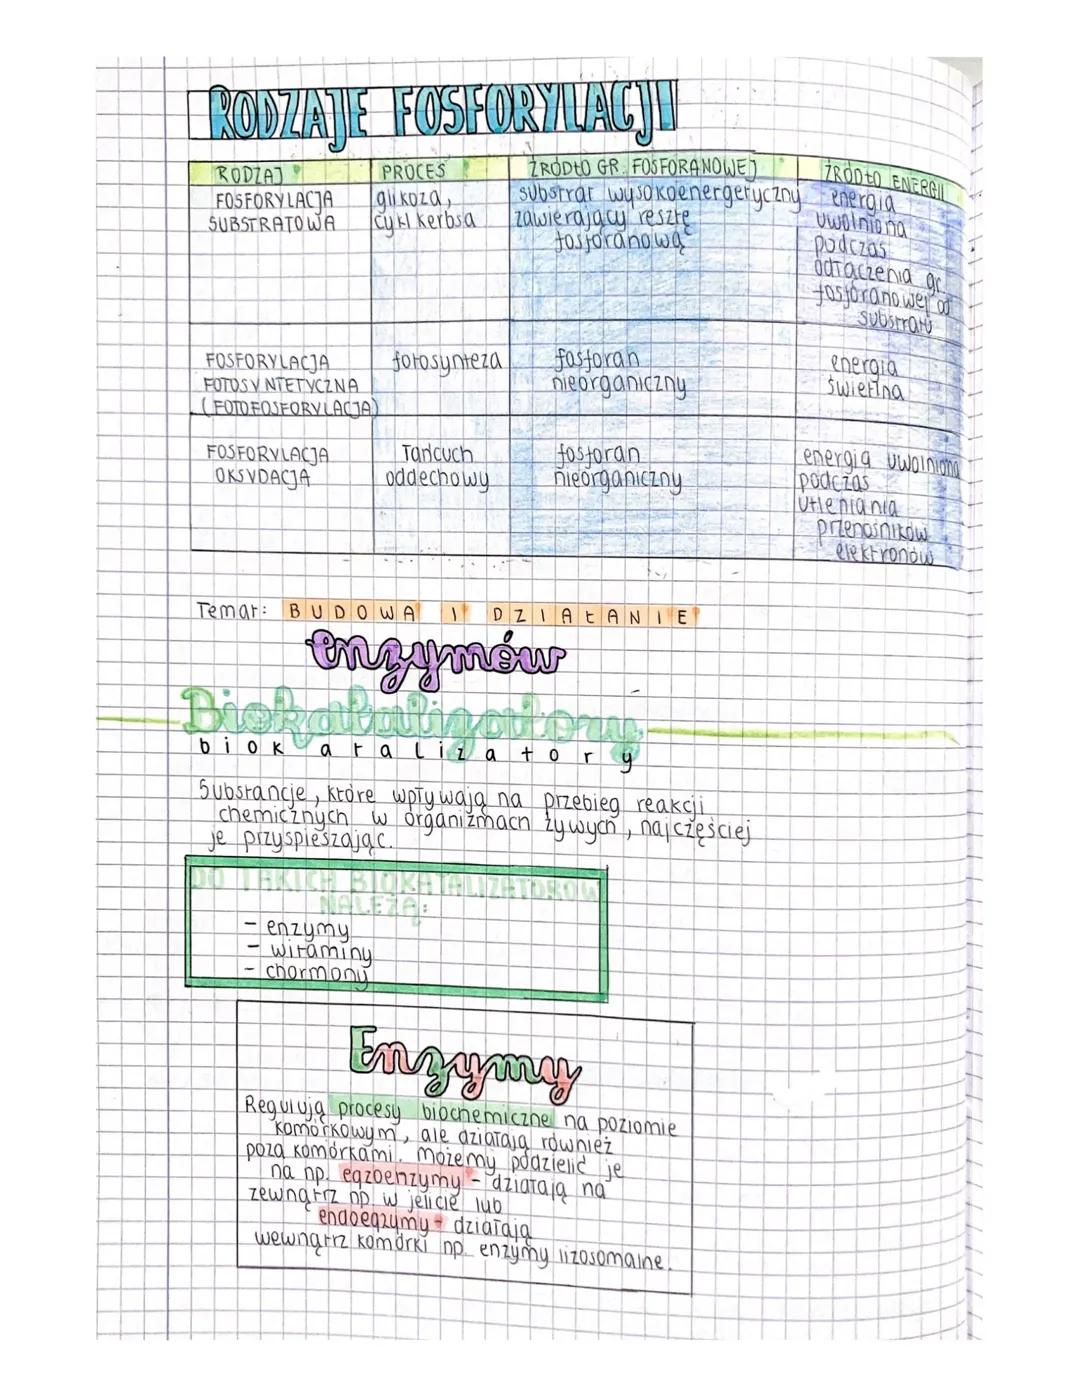 RODZAJE FOSFORYLACJI
RODZAJ PROCES ŹRÓDŁO GR. FOSFORANOWEJ ŹRÓDŁO ENERGII
FOSFORYLACJA
SUBSTRATOWA
glikoza,
cykl kerbsa
substrat wysokoenergetyczny
zawierający resztę
fosforanową
energia
uwolniona
podczas
odłączenia gr.
fosforanowej od
substratu
FOSFORYLACJA
FOTOSYNTETYCZNA
(FOTOFOSFORYLACJA)
fotosynteza
fosforan
nieorganiczny
energia
świetlna
FOSFORYLACJA
OKSYDACJA
Tańcuch
oddechowy
fosforan
nieorganiczny
energia uwolniona
podczas
utleniania
przenośników
elektronów
Temat: BUDOWA I DZIAŁANIE
enzymów
Biokatalizatory
biokatalizatory
Substancje, które wpływają na przebieg reakcji
chemicznych w organizmach żywych, najczęściej
je przyspieszając.
DO TAKICH BIOKATALIZATORÓW
NALEŻĄ:
- enzymy
- witaminy
- chormony
Enzymy
Regulują procesy biochemiczne na poziomie
komórkowym, ale działają również
poza komórkami. możemy podzielić je
na np. egzoenzymy - działają na
zewnątrz np. w jelicie lub
endoegzymy - działają
wewnątrz komórki np. enzymy lizosomalne.